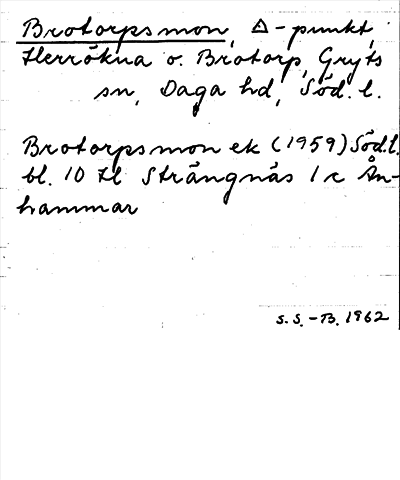 Brotorpsmon, △-punkt,
Herrökna o. Brotorp, Gryts
sn, Daga hd, Söd. l.
Brotorpsmon ek (1959) Söd.l.
bl. 10 H Strängnäs 1 c Ån-
hammar
S.S.-B. 1962